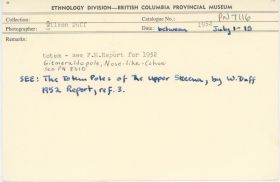 ETHNOLOGY DIVISION—BRITISH COLUMBIA PROVINCIAL MUSEUM
Collection: Catalogue No.: PN 7116
Photographer: Wilson Duff Date: between 1952 July 1-15
Remarks:
totem - see P.M.Report for 1952
Gitsmeraldo pole, Nose-like-Cohoe
See PN 8310
SEE: The Totem Poles of The Upper Skeena, by W. Duff
1952 Report, ref. 3.